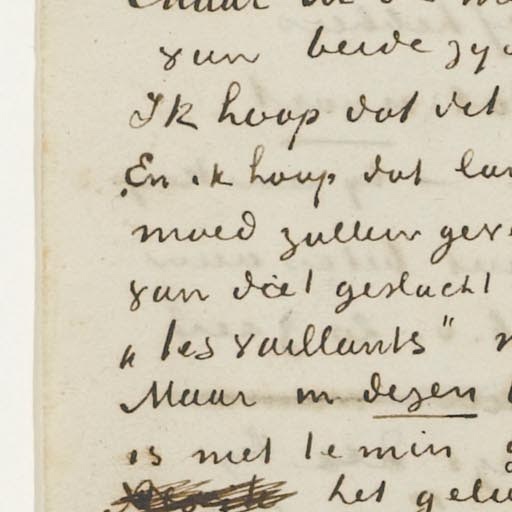 van beide zy
Ik hoop dat dit
En ik hoop dat
moed zullen
van dat geslacht
„les vaillants"
Maar in dezen
is niet te min
het